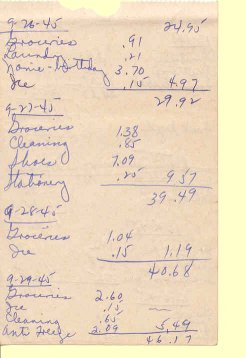 9-26-45 24.95
Groceries .91
Laundry .21
- Birthday 3.70
Ice .15 4.97
29.92
9-27-45
Groceries 1.38
Cleaning .85
Shoes 7.09
Stationery .25 9.57
39.49
9-28-45
Groceries 1.04
Ice .15 1.19
40.68
9-29-45
Groceries 2.60
Ice .15
Cleaning .65
Anti Freeze 2.09 5.49
46.17